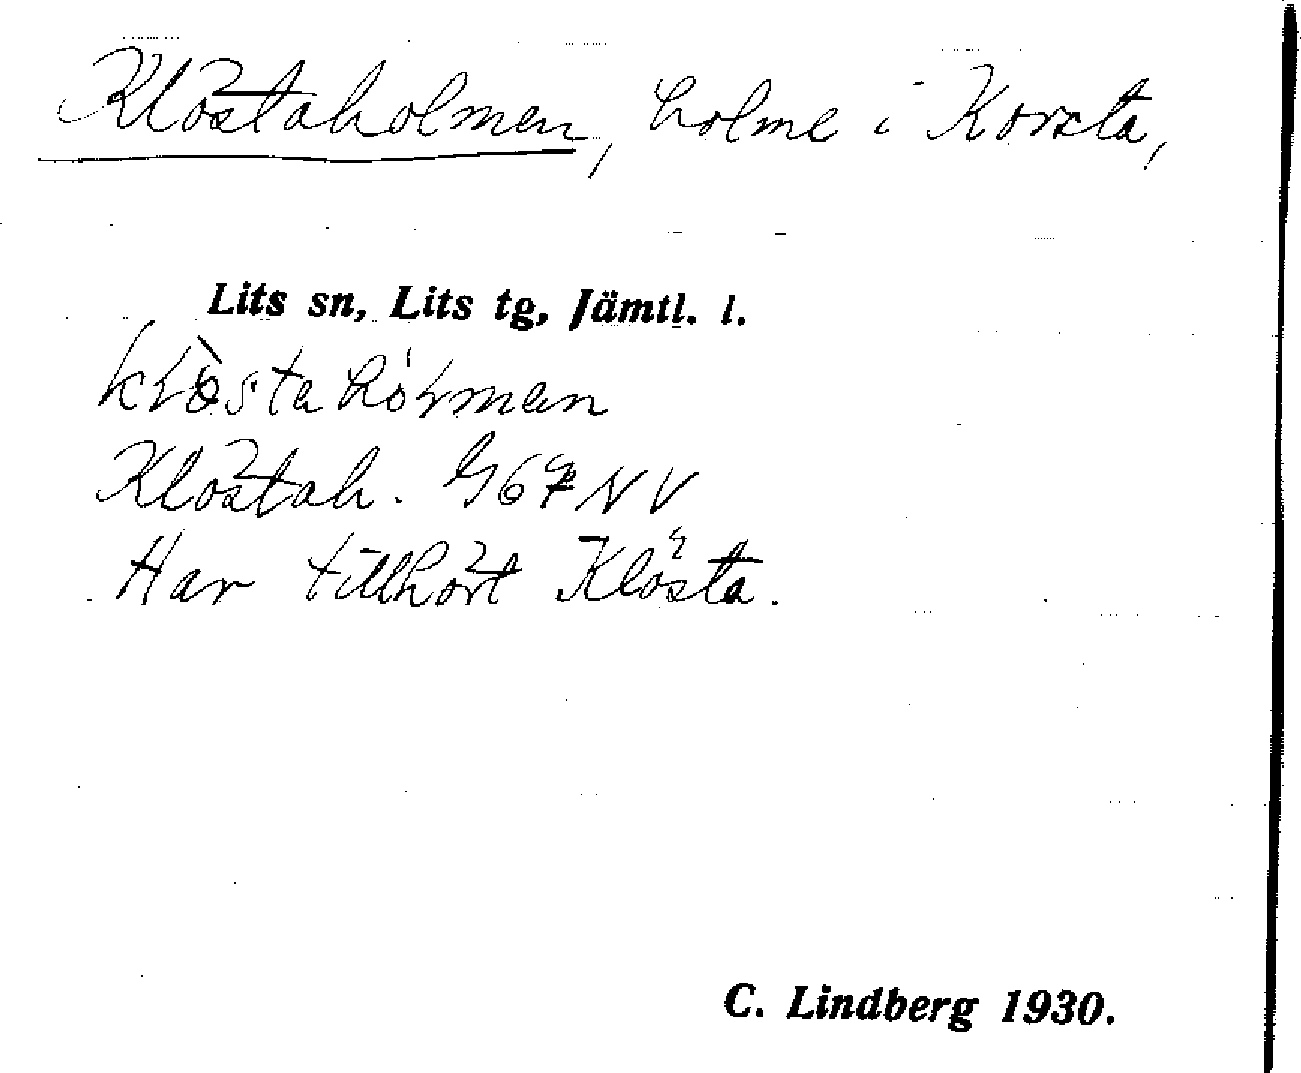 Klöstaholmen, holme i Korsta,
Lits sn, Lits tg, Jämtl. l.
Klöstah. G67NV
Har tillhört Klösta.
C. Lindberg 1930.